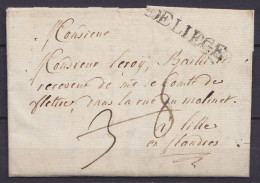 DE LIEGE
Monsieur
Monsieur leroy, Bailli
receveur de mr le Comte de
dans la rue du molinet
3 8
a lille
en flandres